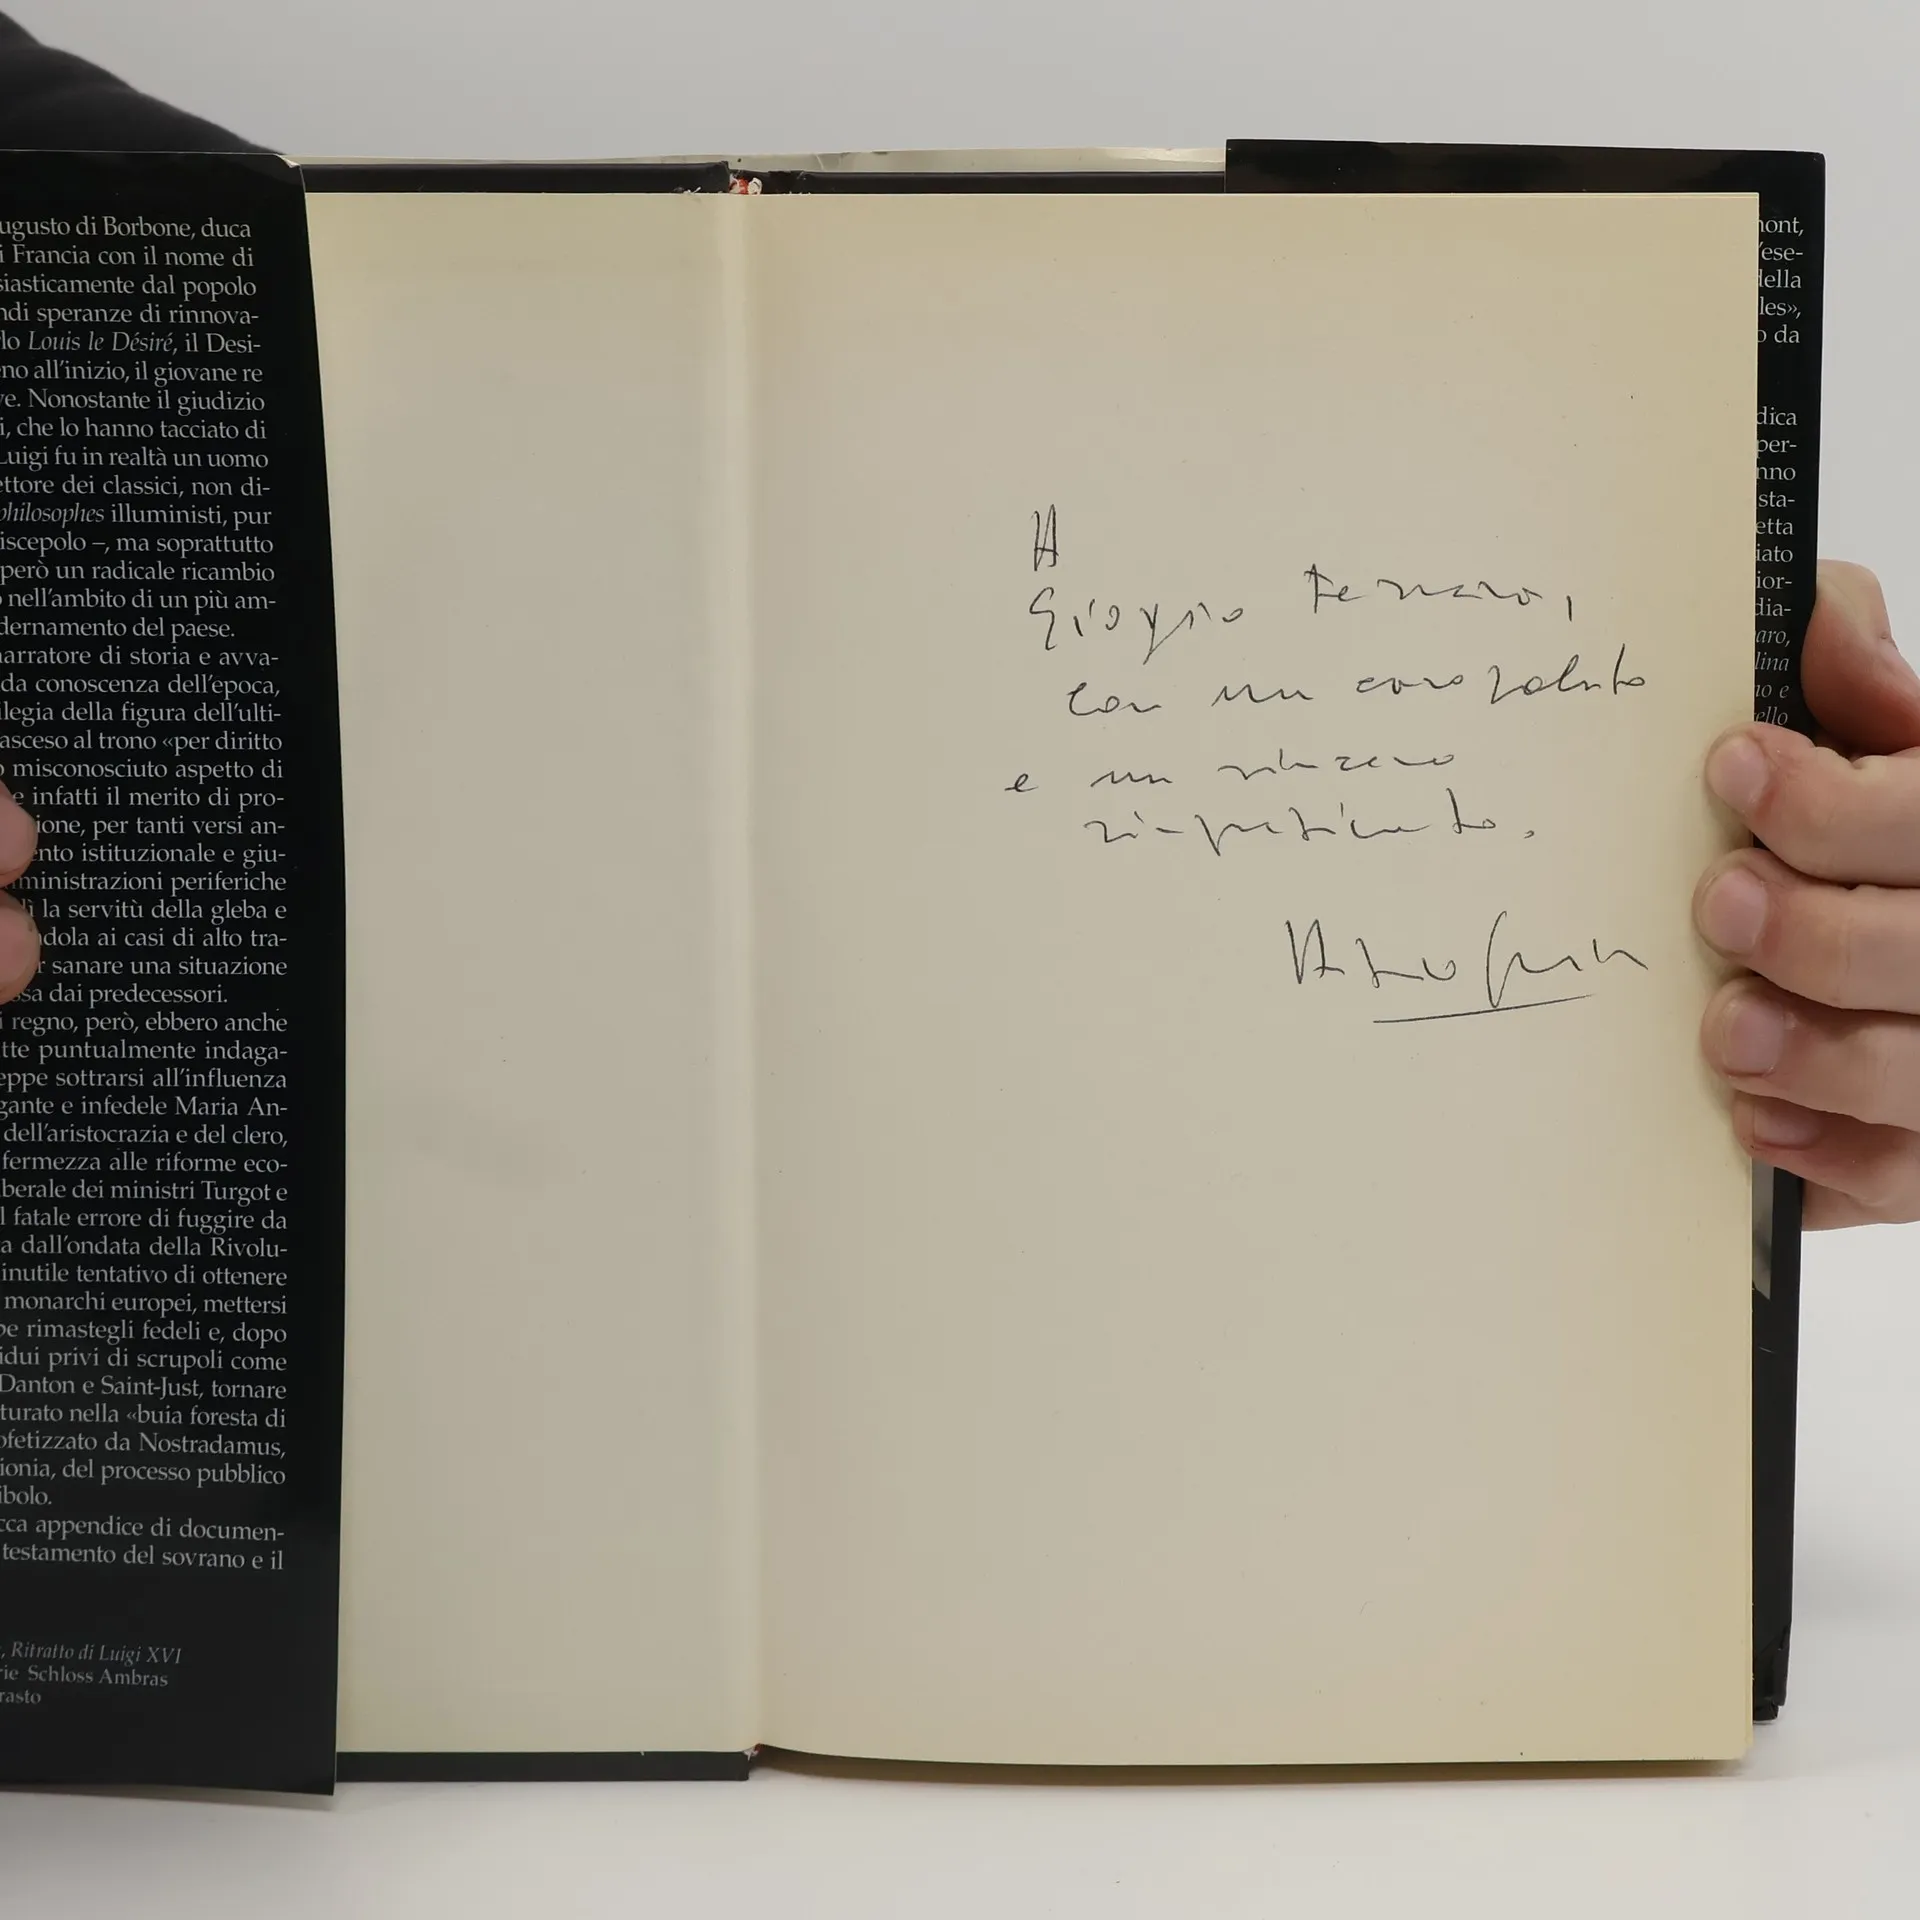 ugusto di Borbone, duca
i Francia con il nome di
siasticamente dal popolo
ndi speranze di rinnova-
lo Louis le Désiré, il Desi-
no all'inizio, il giovane re
ve. Nonostante il giudizio
i, che lo hanno tacciato di
Luigi fu in realtà un uomo
ettore dei classici, non di-
philosophes illuministi, pur
iscepolo –, ma soprattutto
però un radicale ricambio
o nell'ambito di un più am-
dernamento del paese.
narratore di storia e avva-
da conoscenza dell'epoca,
ilegia della figura dell'ulti-
asceso al trono «per diritto
o misconosciuto aspetto di
e infatti il merito di pro-
ione, per tanti versi an-
ento istituzionale e giu-
ministrazioni periferiche
lì la servitù della gleba e
ndola ai casi di alto tra-
r sanare una situazione
ssa dai predecessori.
i regno, però, ebbero anche
tte puntualmente indaga-
eppe sottrarsi all'influenza
gante e infedele Maria An-
dell'aristocrazia e del clero,
fermezza alle riforme eco-
berale dei ministri Turgot e
l fatale errore di fuggire da
a dall'ondata della Rivolu-
inutile tentativo di ottenere
monarchi europei, mettersi
pe rimastegli fedeli e, dopo
idui privi di scrupoli come
Danton e Saint-Just, tornare
turato nella «buia foresta di
ofetizzato da Nostradamus,
ionia, del processo pubblico
ibolo.
cca appendice di documen-
testamento del sovrano e il
, Ritratto di Luigi XVI
rie Schloss Ambras
rasto
A
Giorgio Ferraro,
con un caro saluto
e un sincero
ringraziamento.
mont,
'ese-
della
les»,
o da
dica
per-
nno
sta-
etta
iato
ior-
dia-
aro,
lina
no e
ello